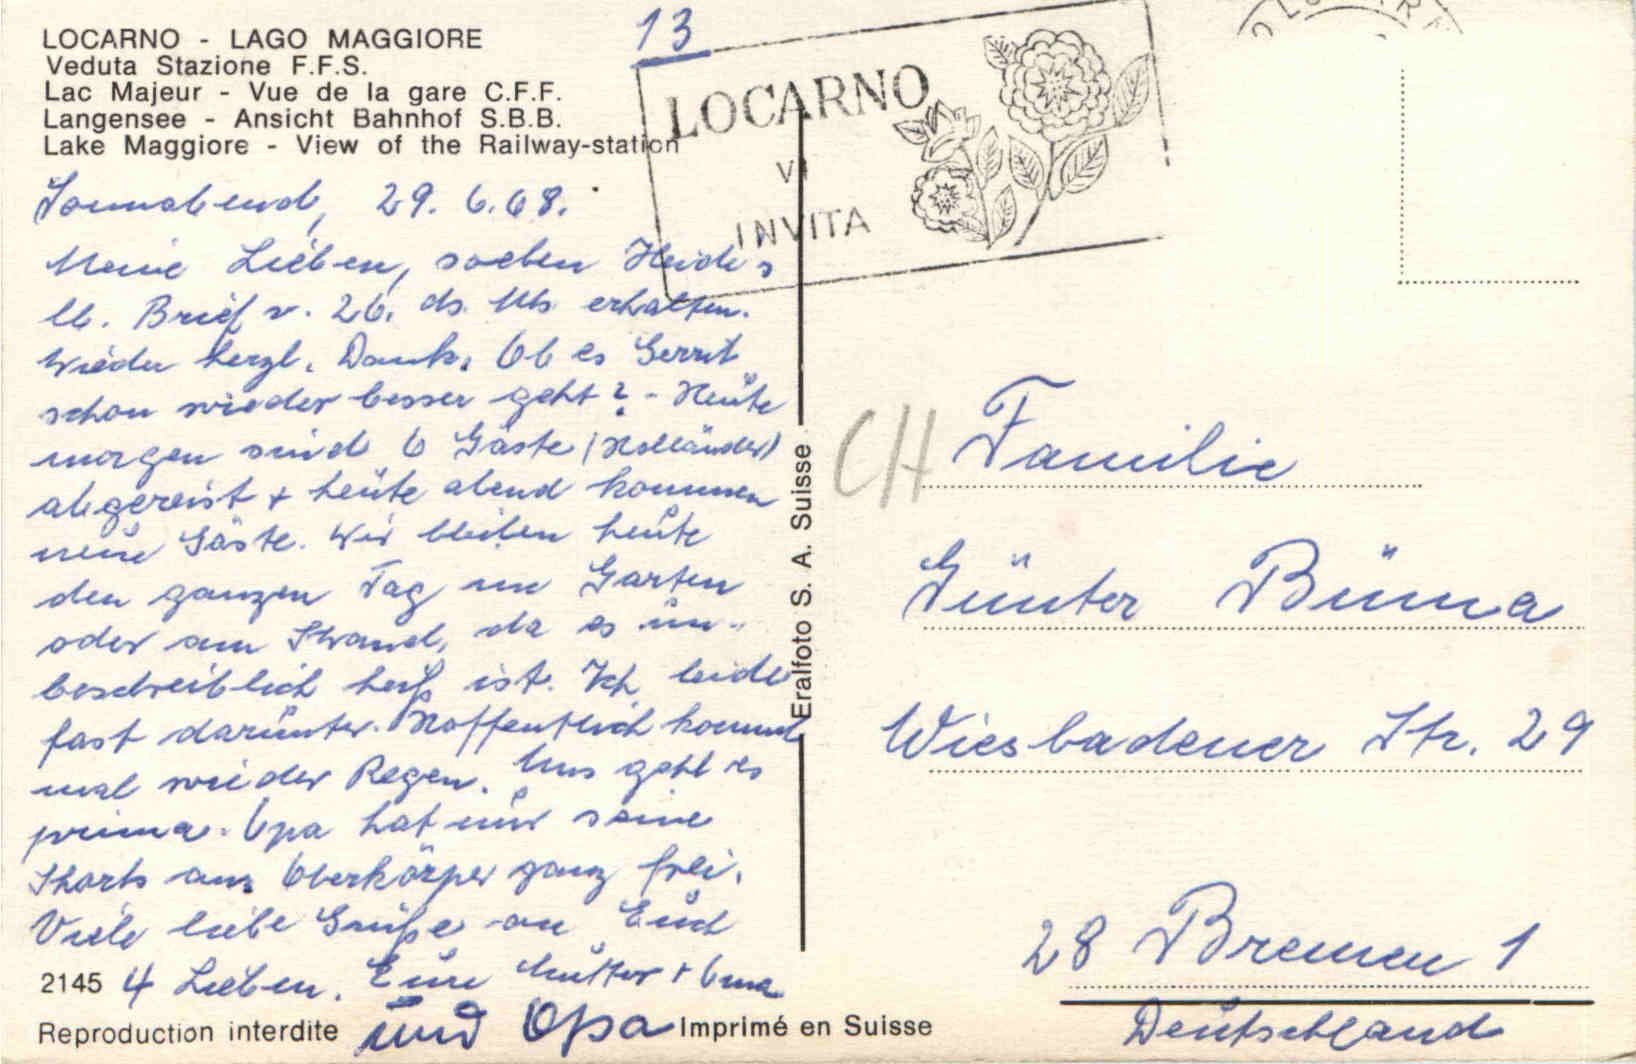 13
LOCARNO - LAGO MAGGIORE
Veduta Stazione F.F.S.
Lac Majeur - Vue de la gare C.F.F.
Langensee - Ansicht Bahnhof S.B.B.
Lake Maggiore - View of the Railway-station
LOCARNO
VI
INVITA
Sonnabend, 29. 6. 68.
Meine Lieben, soeben Heidis
lb. Brief v. 26. ds. Mts. erhalten.
Wieder herzl. Dank. Ob es Gerrit
schon wieder besser geht? - Heute
morgen sind 6 Gäste (Holländer)
abgereist + heute abend kommen
neue Gäste. Wir bleiben heute
den ganzen Tag im Garten
oder am Strand, da es un-
beschreiblich heiß ist. Ich leide
fast darunter. Hoffentlich kommt
mal wieder Regen. Uns geht es
prima. Opa hat nur seine
Shorts an, Oberkörper ganz frei.
Viele liebe Grüße an Euch
4 Lieben. Eure Mutter + Oma
und Opa
2145
Reproduction interdite
Imprimé en Suisse
Eralfoto S. A. Suisse
CH
Familie
Günter Büma
Wiesbadener Str. 29
28 Bremen 1
Deutschland